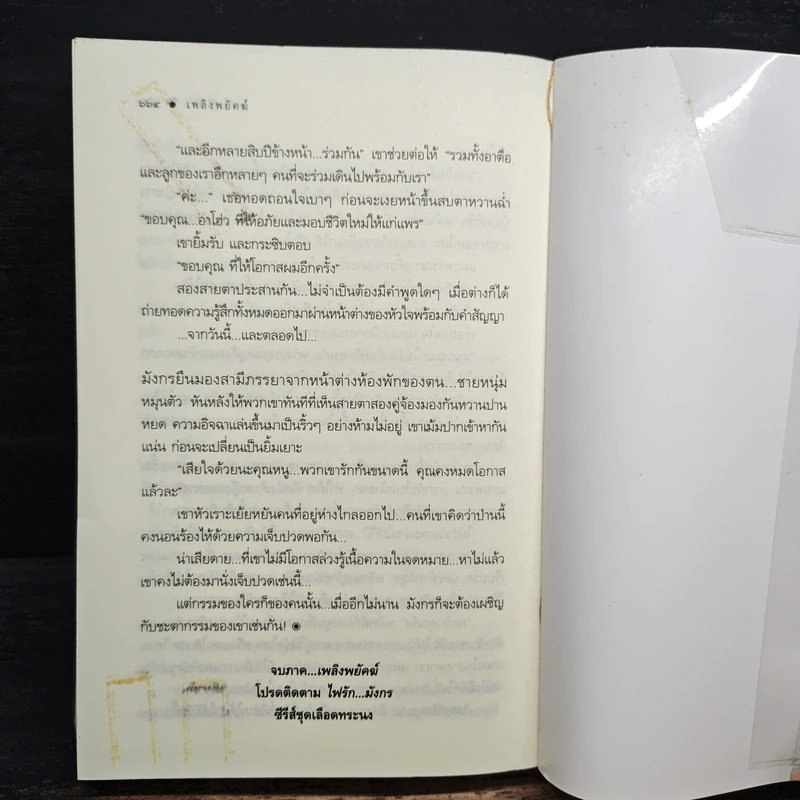 ๖๖๔ ● เพลิงพยัคฆ์
“และอีกหลายสิบปีข้างหน้า...ร่วมกัน” เขาช่วยต่อให้ “รวมทั้งอาตือ
และลูกของเราอีกหลายๆ คนที่จะร่วมเดินไปพร้อมกับเรา”
“ค่ะ...” เธอทอดถอนใจเบาๆ ก่อนจะเงยหน้าขึ้นสบตาหวานฉ่ำ
“ขอบคุณ...อาโฮ่ว ที่ให้อภัยและมอบชีวิตใหม่ให้แก่แพร”
เขายิ้มรับ และกระซิบตอบ
“ขอบคุณ ที่ให้โอกาสผมอีกครั้ง”
สองสายตาประสานกัน...ไม่จำเป็นต้องมีคำพูดใดๆ เมื่อต่างก็ได้
ถ่ายทอดความรู้สึกทั้งหมดออกมาผ่านหน้าต่างของหัวใจพร้อมกับคำสัญญา
...จากวันนี้...และตลอดไป...
มังกรยืนมองสามีภรรยาจากหน้าต่างห้องพักของตน...ชายหนุ่ม
หมุนตัว หันหลังให้พวกเขาทันทีที่เห็นสายตาสองคู่จ้องมองกันหวานปาน
หยด ความอิจฉาแล่นขึ้นมาเป็นริ้วๆ อย่างห้ามไม่อยู่ เขาเม้มปากเข้าหากัน
แน่น ก่อนจะเปลี่ยนเป็นยิ้มเยาะ
“เสียใจด้วยนะคุณหนู...พวกเขารักกันขนาดนี้ คุณคงหมดโอกาส
แล้วละ”
เขาหัวเราะเย้ยหยันคนที่อยู่ห่างไกลออกไป...คนที่เขาคิดว่าป่านนี้
คงนอนร้องไห้ด้วยความเจ็บปวดพอกัน...
น่าเสียดาย...ที่เขาไม่มีโอกาสล่วงรู้เนื้อความในจดหมาย...หาไม่แล้ว
เขาคงไม่ต้องมานั่งเจ็บปวดเช่นนี้...
แต่กรรมของใครก็ของคนนั้น...เมื่ออีกไม่นาน มังกรก็จะต้องเผชิญ
กับชะตากรรมของเขาเช่นกัน! ◉
จบภาค...เพลิงพยัคฆ์
โปรดติดตาม ไฟรัก...มังกร
ซีรีส์ชุดเลือดทระนง